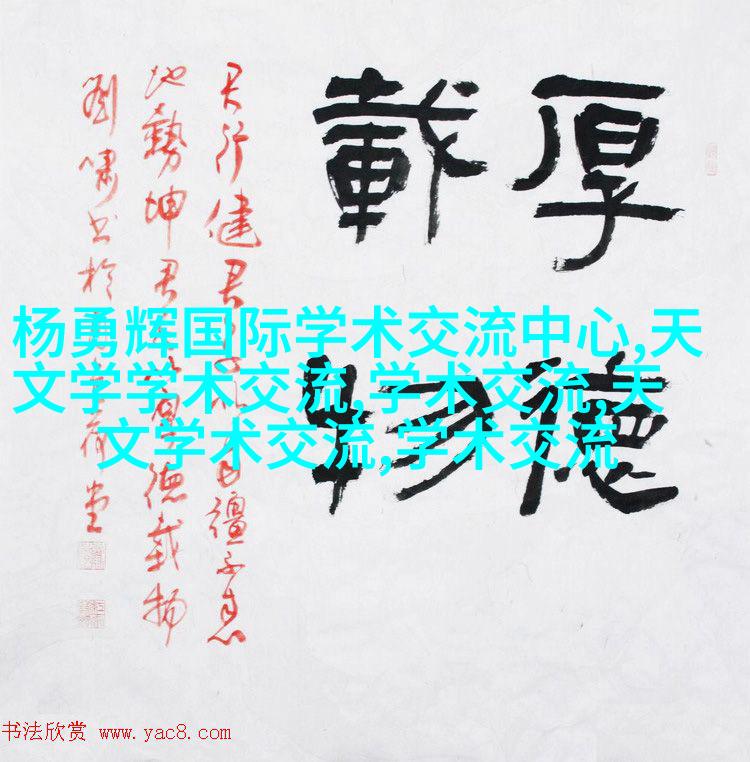 厚德
載物
天行健君子以自彊不息
地勢坤君子以厚德載物
劉嘯书於荷堂
杨勇辉国际学术交流中心,天
文学学术交流,学术交流,天
文学术交流,学术交流
书法欣赏 www.yac8.com